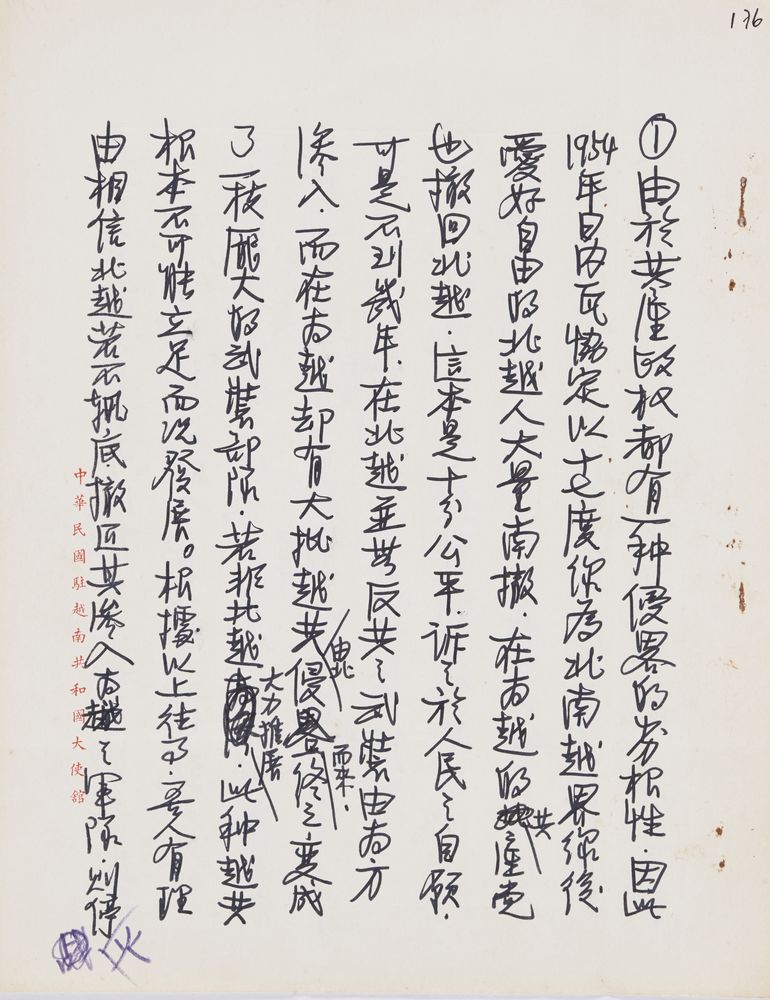 136
①由於共產政权都有一种侵畧的劣根性.因此
1954年日內瓦協定以十七度作為北南越界線後
愛好自由的北越人大量南撤.在南越的共產党
也撤回北越.這本是十分公平.訴之於人民之自願.
可是不到幾年.在北越並無反共之武裝由南方
滲入.而在南越却有大批越共由北侵畧而來.終之變成
了一枝龐大的武裝部隊.若非北越大力推展.此种越共
根本不可能立足而况發展。根據以上往事.吾人有理
由相信北越若不執底撤囘其滲入南越之軍隊.則停
火
中華民國駐越南共和國大使館